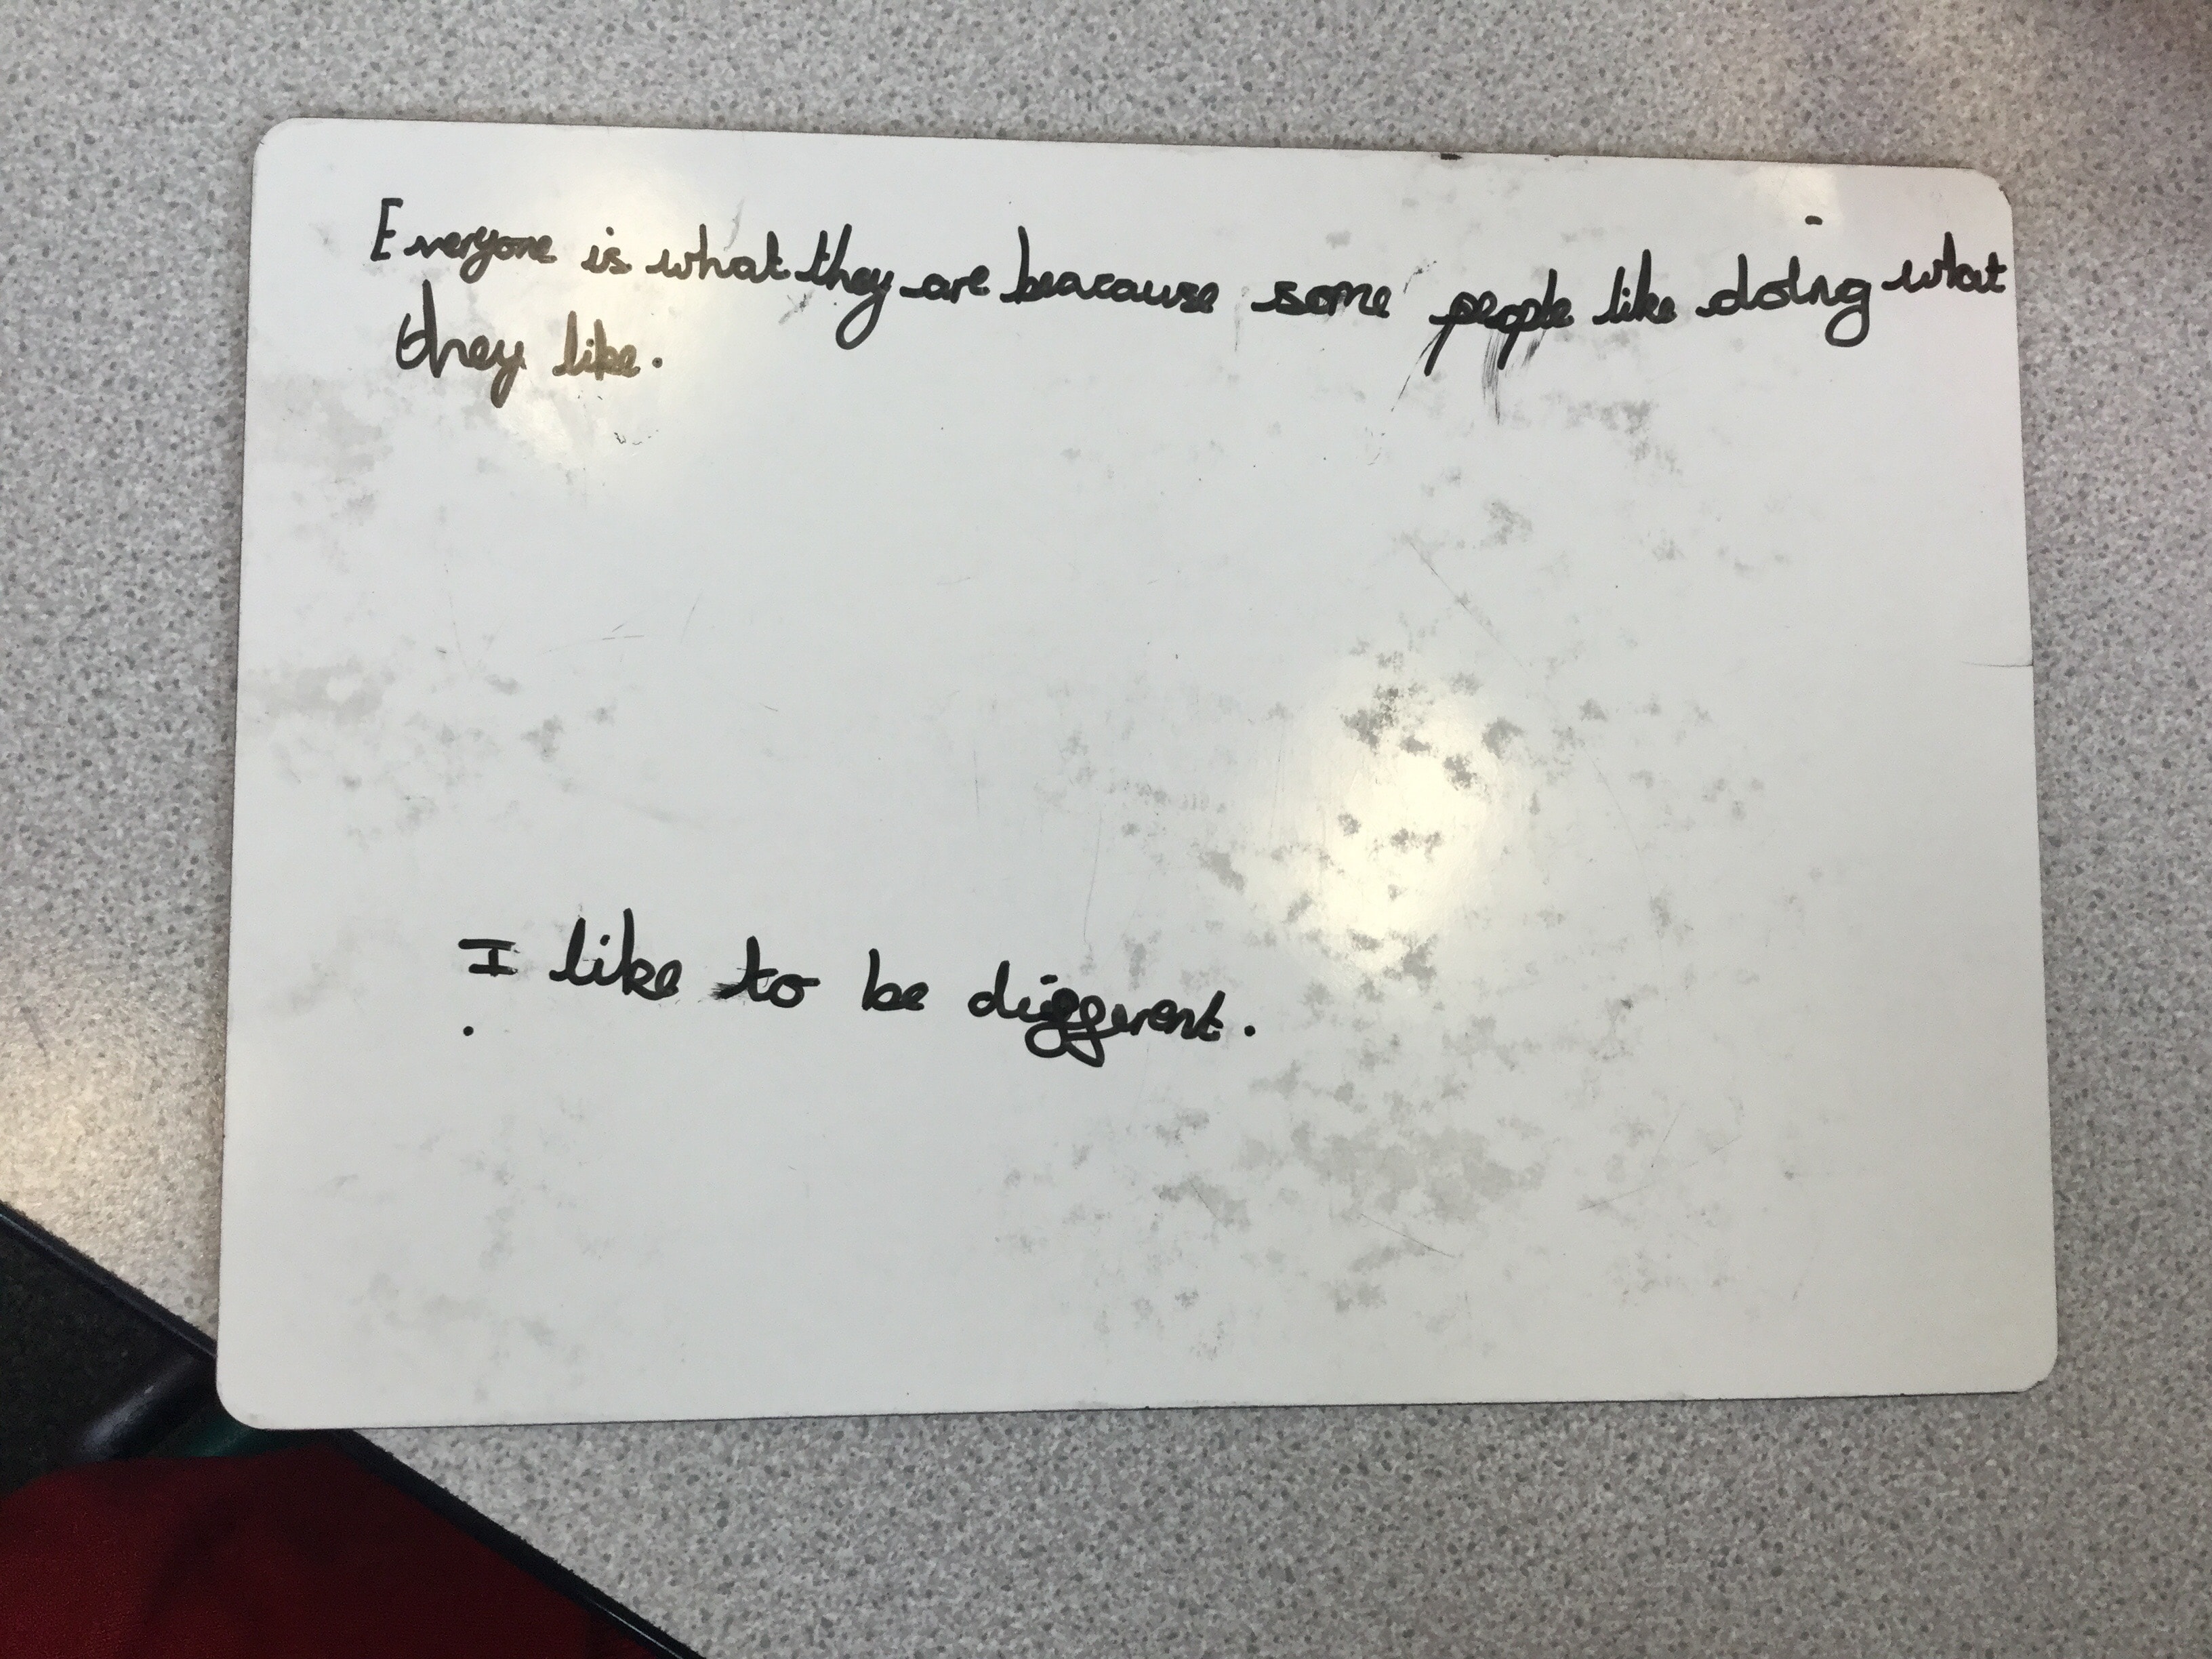 Everyone is what they are beacause some people like doing what
they like.
I like to be different.